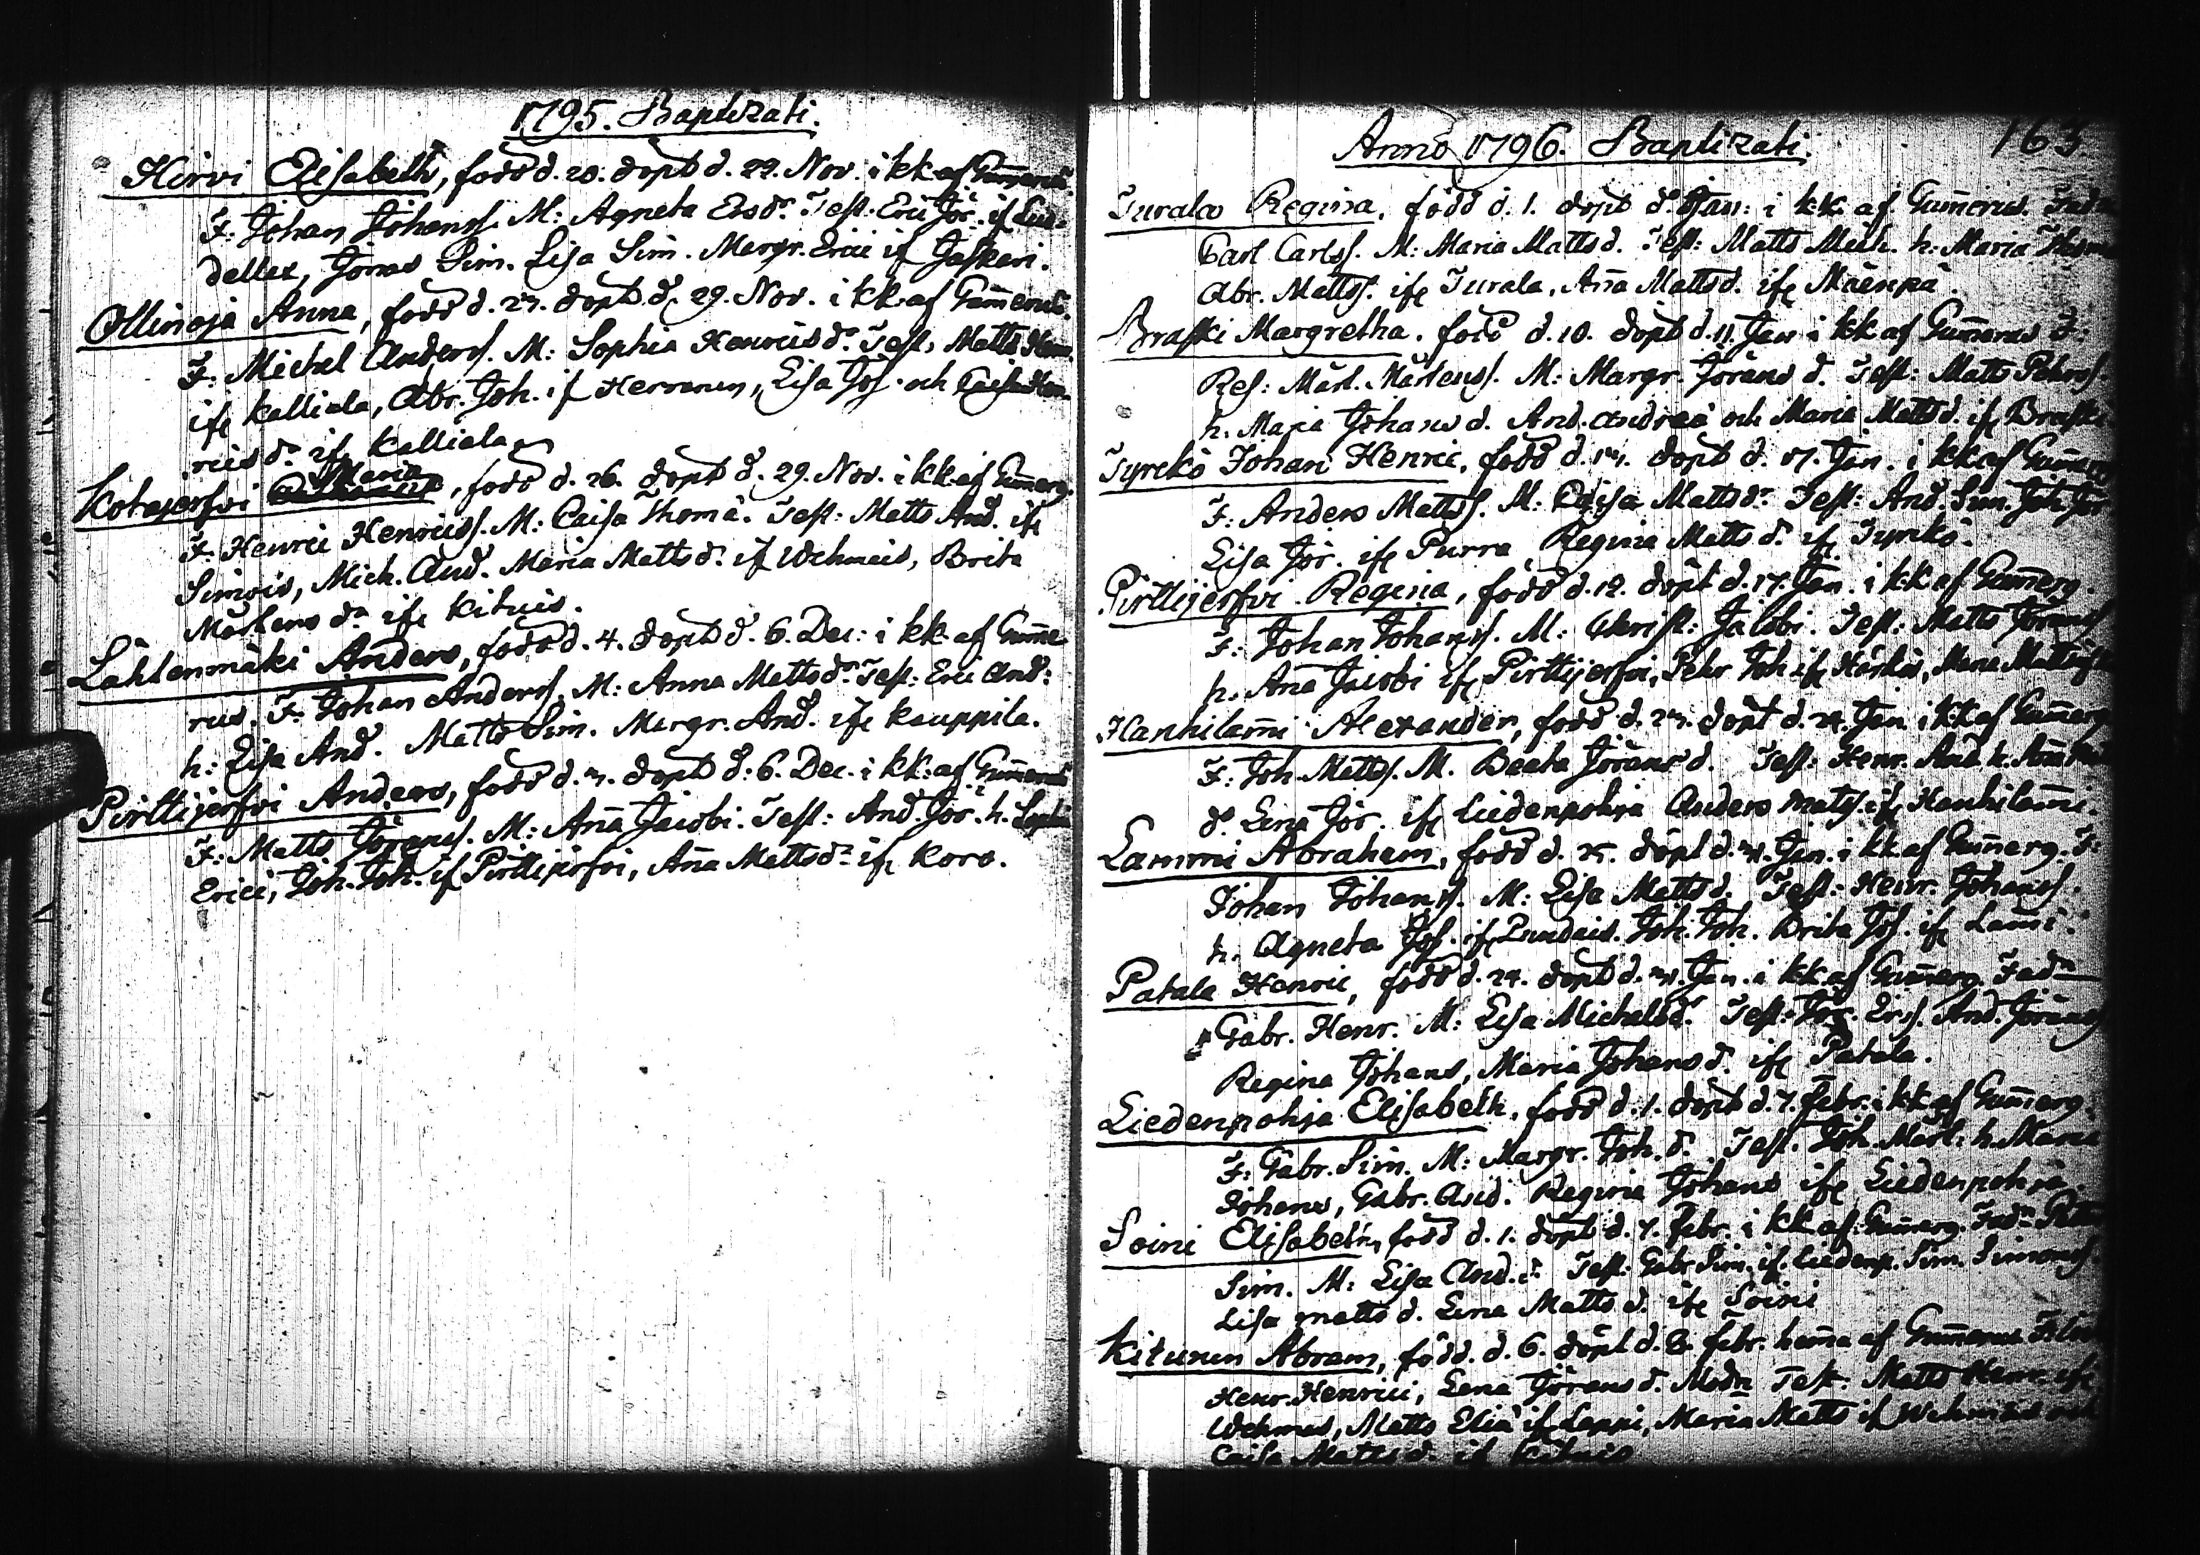 1795. Baptizati.
Hirvi Elisabeth, född d. 20. döpt d. 22. Nov. i kk af Gumerus
F: Johan Johanss. M: Agneta Ersdr. Test: Eric Jör. if
deller, Jonas Sim. Lisa Sim. Margr. Erici if Jaskari.
Ollinoja Anna, född d. 27. döpt d. 29. Nov. i kk af Gumerus.
F: Michel Anderss. M: Sophia Henricsdr. Test: Matts Henr.
ifr Kalliala, Abr. Joh. if Herranen, Lisa Jos. och Caisa Hen-
ricsdr. ifr Kalliala.
Maria
Kotajerfvi, född d. 26. döpt d. 29. Nov. i kk af Gumerg.
F: Henric Henricss. M: Caisa Thomæ. Test: Matts And. ifr
Simois, Mich. And. Maria Mattsdr. if Wehmais, Brita
Mårtensdr. ifr Kituis.
Lähtenmäki Anders, född d. 4. döpt d. 6. Dec: i kk. af Gume-
rus. F: Johan Anderss. M: Anna Mattsdr. Test: Eric And:
h: Lisa And. Matts Sim. Margr. And. ifr Kauppila.
Pirttijerfvi Anders, född d. 3. döpt d: 6. Dec. i kk: af Gumerus
F: Matts Göranss. M: Aña Jacobi. Test: And. Jör. h. Sophia
Erici, Joh. Joh. if Pirttijerfvi, Aña Mattsdr. ifr Koro.
163.
Anno 1796. Baptizati.
Turala Regina, född d. 1. döpt d. Jan: i kk. af Gumerus. Fadr
Carl Carlss. M: Maria Mattsd. Test: Matts Mich. h: Maria
Abr. Mattss. ifr Turala, Aña Mattsd. ifr Mäenpä.
Braski Margretha. född d. 10. döpt d. 11. Jan i kk af Gumerus F:
Res: Mårt. Mårtenss. M: Margr. Jörans d. Test: Matts Pehrss.
h. Maria Johans d. And. Andreæ och Maria Mattsd. ifr Braski
Tyrckö Johan Henric, född d. 13. döpt d. 17. Jan. i kk af Gumerg
F: Anders Mattss. M: Caisa Mattsdr. Test: And. Sim. Joh. Jör
Lisa Jör. ifr Purra, Regina Mattsdr. ifr Tyrckö.
Pirttijerfvi Regina, född d. 12. döpt d. 17. Jan. i kk af Gumerg.
F: Johan Johanss. M: Christ: Jacobi. Test: Matts Göranss
h. Aña Jacobi ifr Pirttijerfvi, Pehr Joh ifr Härkö, Maria Matts
Hanhilami Alexander, född d. 23. döpt d. 24. Jan. i kk af Gumerg
F: Joh. Mattss. M. Beata Jörans d. Test: Henr. And. h. Aña
d. Lena Jör. ifr Liedenpohja Anders Matss. ifr Hanhilami.
Lammi Abraham, född d. 25. döpt d. 31. Jan. i kk af Gumerg. F:
Johan Johanss. M: Lisa Mattsd. Test: Henr. Johanss.
h. Agneta Jos. ifr Joh. Joh. Brita Jos. ifr Lami.
Patala Henric, född d. 24. döpt d. 31. Jan. i kk af Gumerg. Fadr
Gabr. Henr. M: Lisa Michelsdr. Test: Jör. Erss. And. Jöranss
Regina Johans, Maria Johans d. ifr Patala.
Liedenpohja Elisabeth, född d. 1. döpt d. 7. Febr. i kk af Gumerg.
F: Gabr. Sim. M: Margr. Joh. d. Test. Joh. Mårt: h. Maria
Johans, Gabr. And. Regina Johans ifr Liedenpohja.
Soini Elisabeth, född d. 1. döpt d. 7. Febr. i kk af Gumerg. Fadr
Sim. M: Lisa And. d. Test: Gabr Sim. if. Liedenp. Sim. Simonss.
Lisa matts d. Lena Matts d. ifr Soini
Kitunen Abram, född. d. 6. döpt d. 8. febr. hema af Gumerus
Henr. Henrici, Lena Jörans d. Modr Test. Matts Henr. ifr
Wehmas, Matts Eliæ if Leppi, Maria Matts if Wehmas och
Caisa Matts d. if Kituis